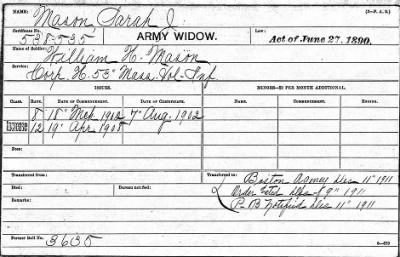 NAME: Mason Sarah J. (3-F. A. G.)
Certificate No.: 538-535 ARMY WIDOW. Law: Act of June 27, 1890.
Name of Soldier: William H. Mason
Service: Corp. H. 53" Mass. Vol. Inf.
ISSUES. MINORS—$2 PER MONTH ADDITIONAL.
CLASS. RATE. DATE OF COMMENCEMENT. DATE OF CERTIFICATE. DATE OF COMMENCEMENT.
8 18" 1902 7" Aug. 1902
12 19" Apr 1908
Fees:
Transferred from: Transferred to: Boston Agency Dec 11" 1911
Died: Bureau notified: Order 9" 1911
Remarks: P-B Notified Dec 11" 1911
Former Roll No. 3635